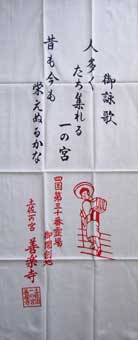 御詠歌
人多く
たち集れる
一の宮
昔も今も
栄えぬるかな
四国第三十番霊場
御開創地
土佐一宮
善楽寺